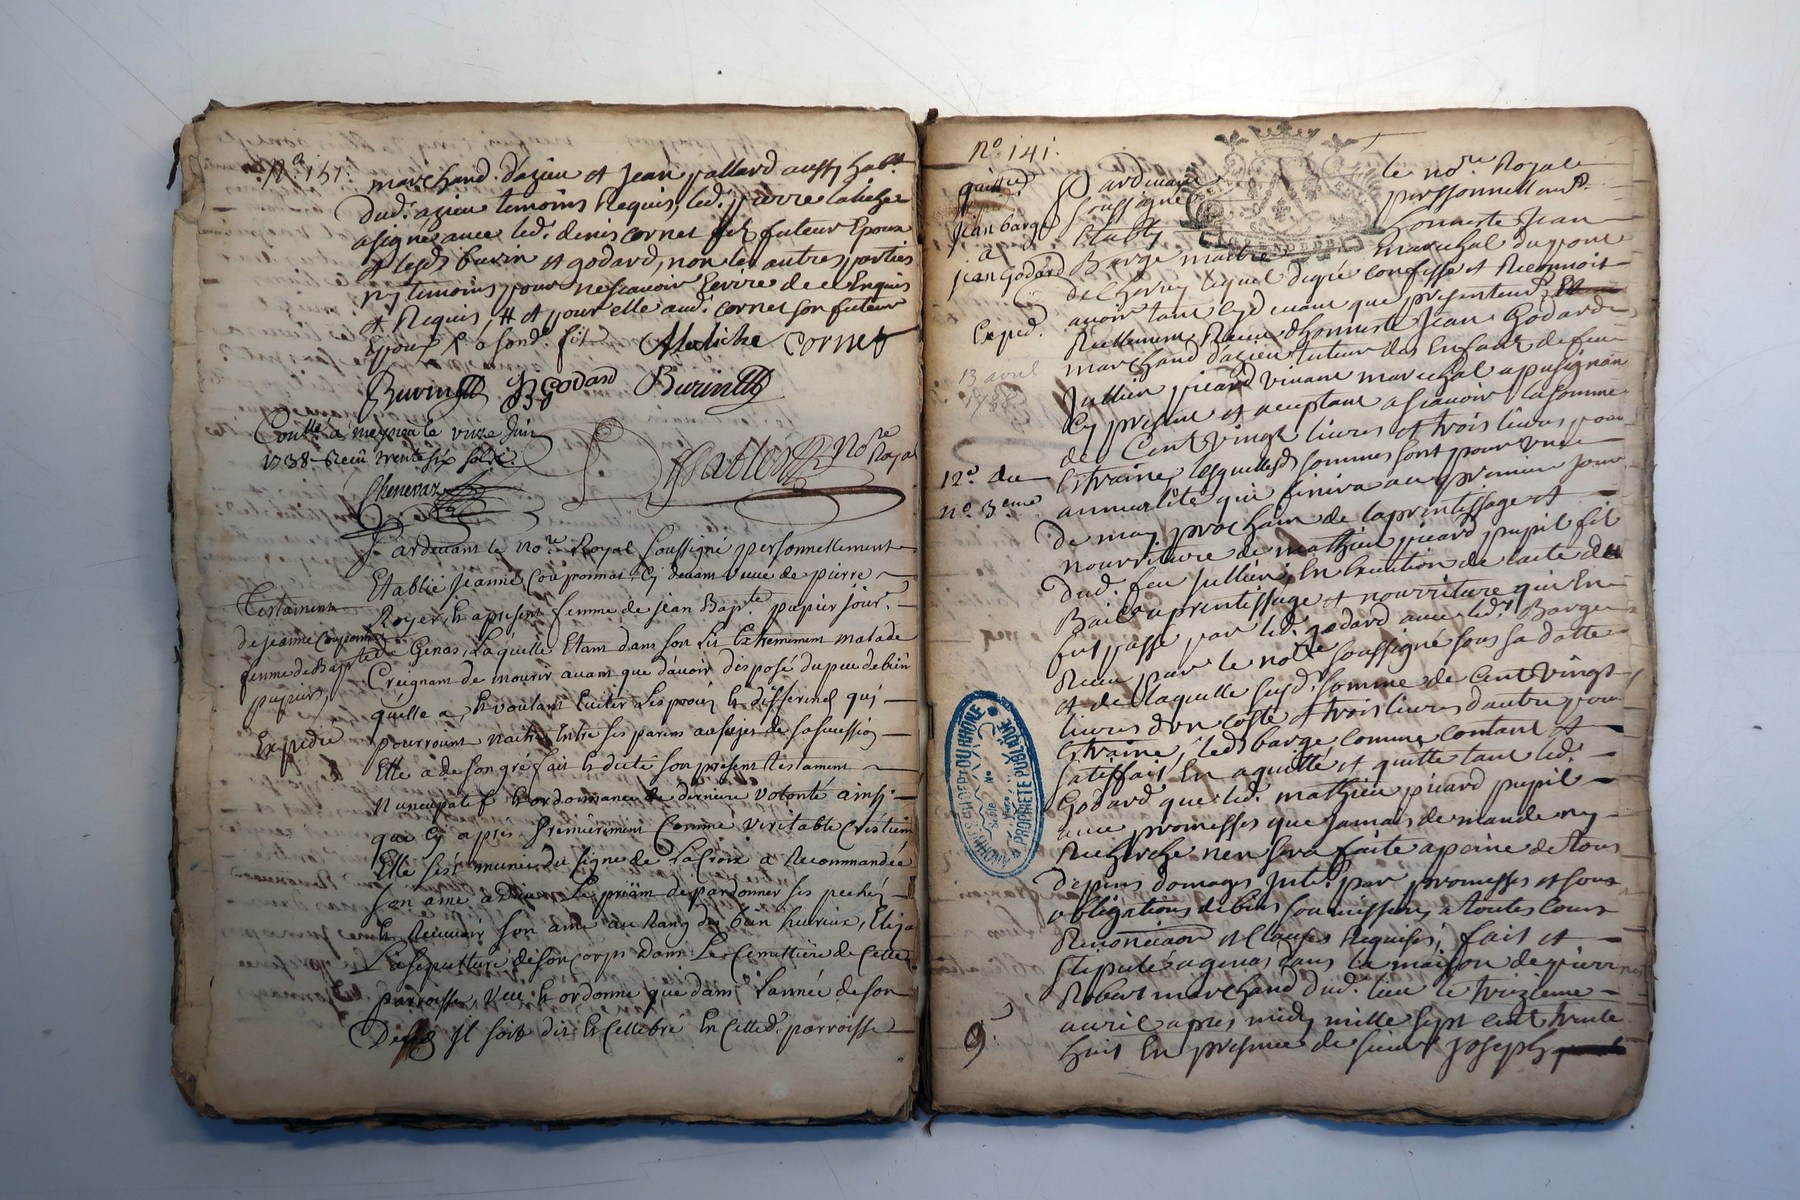 marchand d'azieu et Jean pallard aussy hab^t
dud. azieu temoins Requis, led. pierre
a signé avec led. denis cornet fils futeur Epoux
et lesd. buvin et godard, non les autres parties
ny temoins pour ne scavoir Ecrire de ce Enquis
et Requis, # et pour elle aud. cornet son futeur
Epoux
cornet
Buvin JGodard Buvin
Con^lle a meyzieu le onze Juin
1738 Recu trente six sols
Chenevaz
No^re Royal
Pardevant le no^re Royal soussigné personnellement
Etablie Jeanne Couponnat, cy devant veuve de pierre
Royer, et apresent femme de Jean Bap^te papier jour^r
Genas, Laquelle Etant dans son lit Extremement malade
Creignant de mourir avant que d'avoir disposé du peu de bien
qu'elle a, et voulant Eviter les procés et differend qui
pourroint naitre Entre ses parens au sujet de sa succession
Elle a de son gré fait et dicté son present testament
nuncupatif et ordonnance de derniere volonté ainsi
que cy aprés. Premierement Comme veritable Cretienne
Elle s'est munie du signe de la Croix a Recommandée
son ame a Dieu Le priant de pardonner ses pechés
et Recevoir son ame au Rang des bien heureux, Elija
La sepulture de son corps Dans Le Cemettiere de Cette
parroisse, veut et ordonne que dans L'année de son
Decés Il soit dit et Cellebré En Cetted. parroisse
Testament
de Jeanne Couponnat
femme de Bap^te
papier
Expedié
n° 141.
quittance
Jean barge
a
Jean Godard
Exped.
13 avril
1738
12^e du
n° 3^eme
Pardevant le no^re Royal
soussigné perssonnellem^t
Etably honneste Jean
Barge maitre marechal du pont
de cheruy lequel degré confesse et Reconnoit
avoir tant cyd'evant que presentem^t
Reellement Receu d'honneste Jean Godard
marchand d'azieu tuteur des Enfant de feu
Jullien picard vivant marechal a pusignan
Cy present et aceptant a scavoir la somme
de Cent vingt livres et trois livres pour
Etraine, lesquelles sommes sont pour une
annualité qui finira au premier jour
de may prochain de laprentissage et
nourriture de mathieu picard pupil fil
dud. feu Jullien, En Execution de l'acte de
Bail en aprentissage et nourriture qui En
fut passé par led. godard avec led. Barge
Receu par le no^re soussigné sous sa datte
et de laquelle susd. somme de Cent vingt
livres d'un costé et trois livres d'autre pour
Etraine, led. barge comme contant et
satisfait En a quitté et quitte tant led.
Godard que led. mathieu picard pupil
avec promesses que jamais demande ny
Recherche n'en sera faite a peine de tous
depens domages Int. par promesses et sous
obligations de biens soumissions a toutes Cours
Renonciaon et Clauses Requises, fait et
stipulé a genas dans la maison de pierre
Robert marchand dud. lieu le treizieme
avril apres midy mille sept cent trente
huit En presence de sieur Joseph
ARCHIVES DU DEP^T DU RHÔNE
PROPRIÉTÉ PUBLIQUE